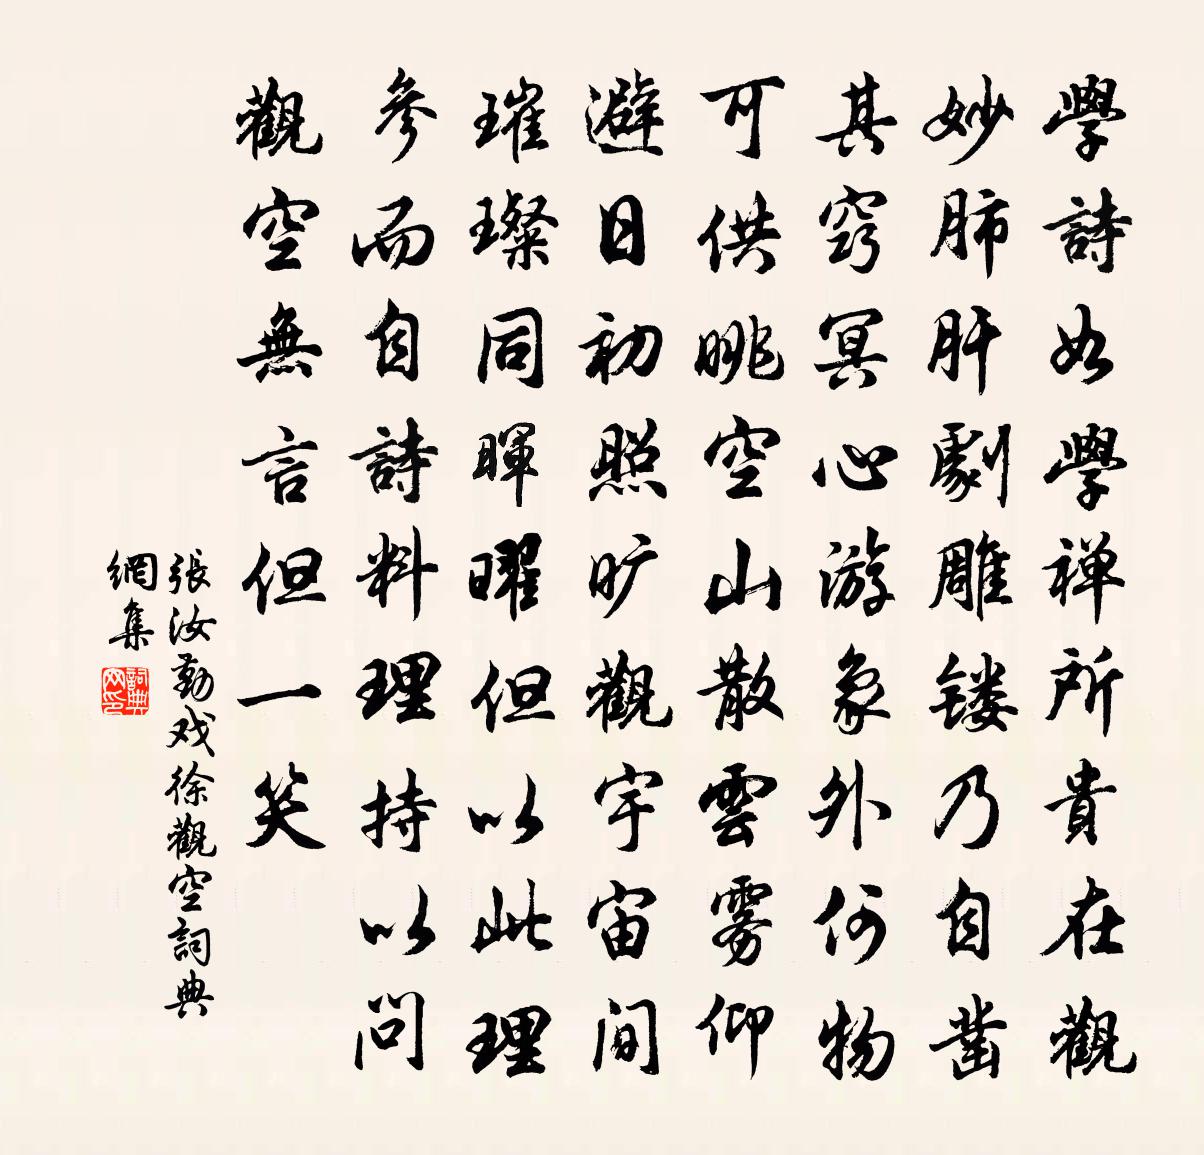 學詩如學禅所貴在觀
妙肺肝劇雕镂乃自凿
其窍冥心游象外何物
可供眺空山散雲雾仰
避日初照旷觀宇宙间
璀璨同暉曜但以此理
參而自詩料理持以问
觀空無言但一笑
張汝勤戏徐觀空詞典
網集
詞典
网印